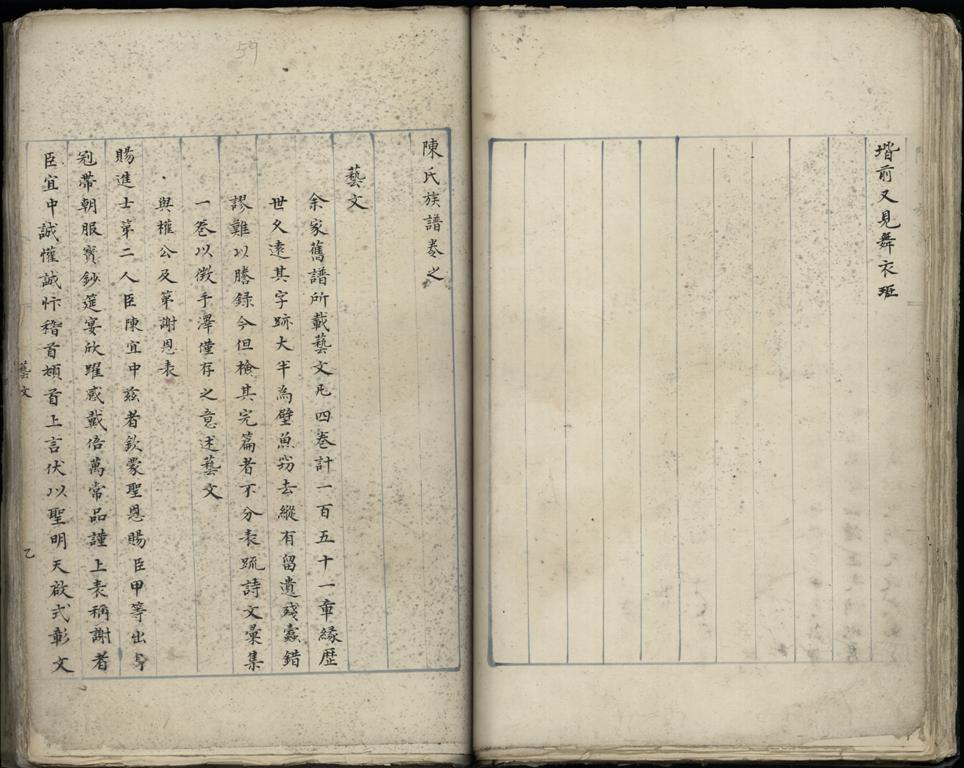 堦前又見舞衣斑
59
陳氏族譜卷之
藝文
余家舊譜所載藝文凡四卷計一百五十一章緣歷
世久遠其字跡大半為壁魚窃去縱有留遺殘蠹錯
謬難以謄錄今但檢其完篇者不分表疏詩文彙集
一卷以徵手澤僅存之意述藝文
與權公及第謝恩表
賜進士第二人臣陳宜中茲者欽蒙聖恩賜臣甲等出身
冠帶朝服寶鈔筵宴欣躍感戴倍萬常品謹上表稱謝者
臣宜中誠懽誠忭稽首頓首上言伏以聖明天啟式彰文
藝文
乙